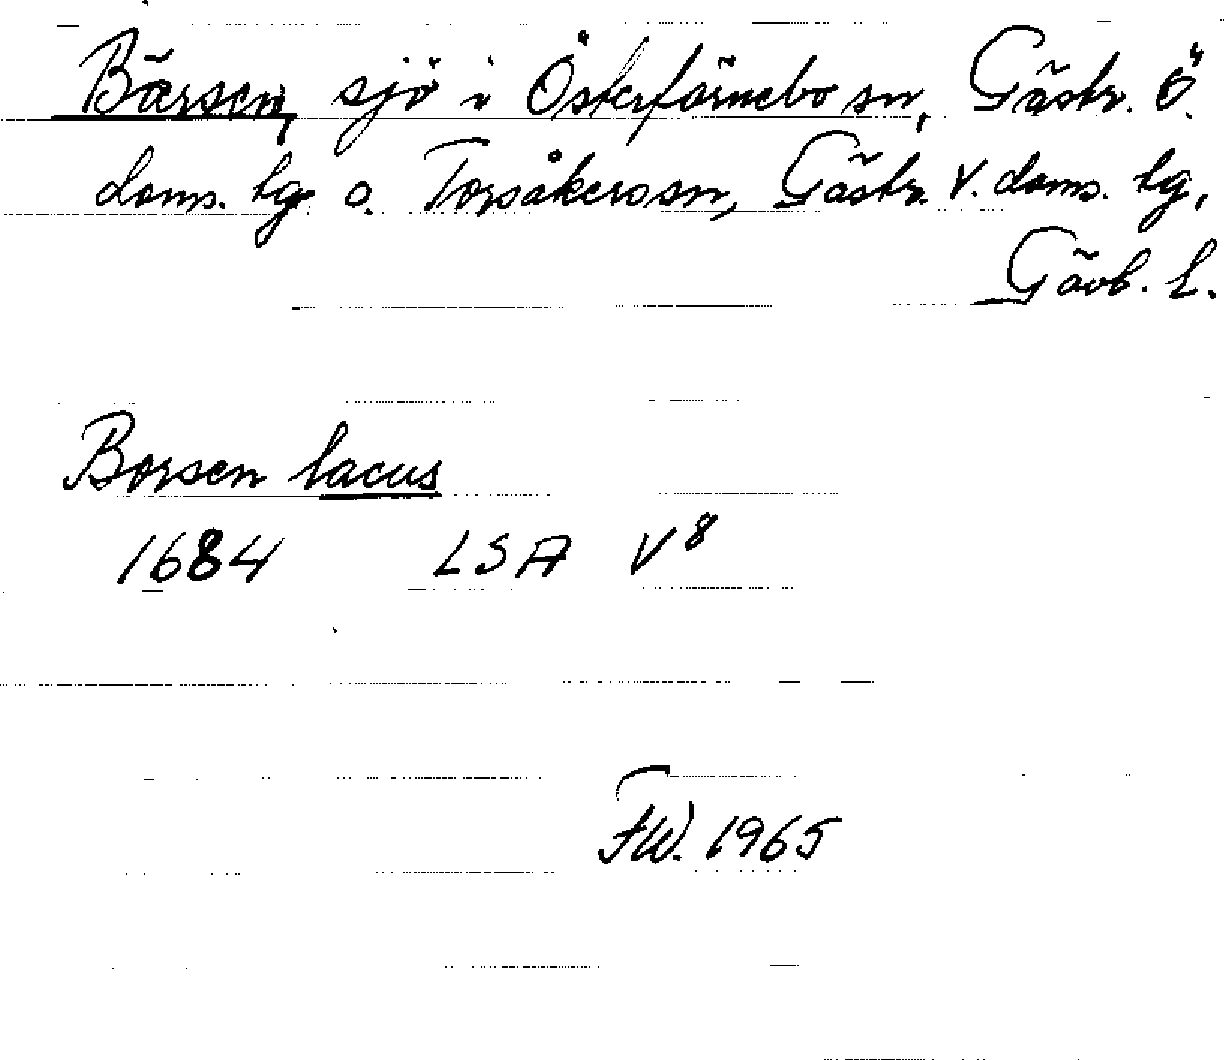 Bärsen, sjö i Österfärnebo sn, Gästr. Ö.
doms. lg o. Torsåkers sn, Gästr. V. doms. lg,
Gävb. L.
Borsen lacus
1684 LSA V8
FW. 1965